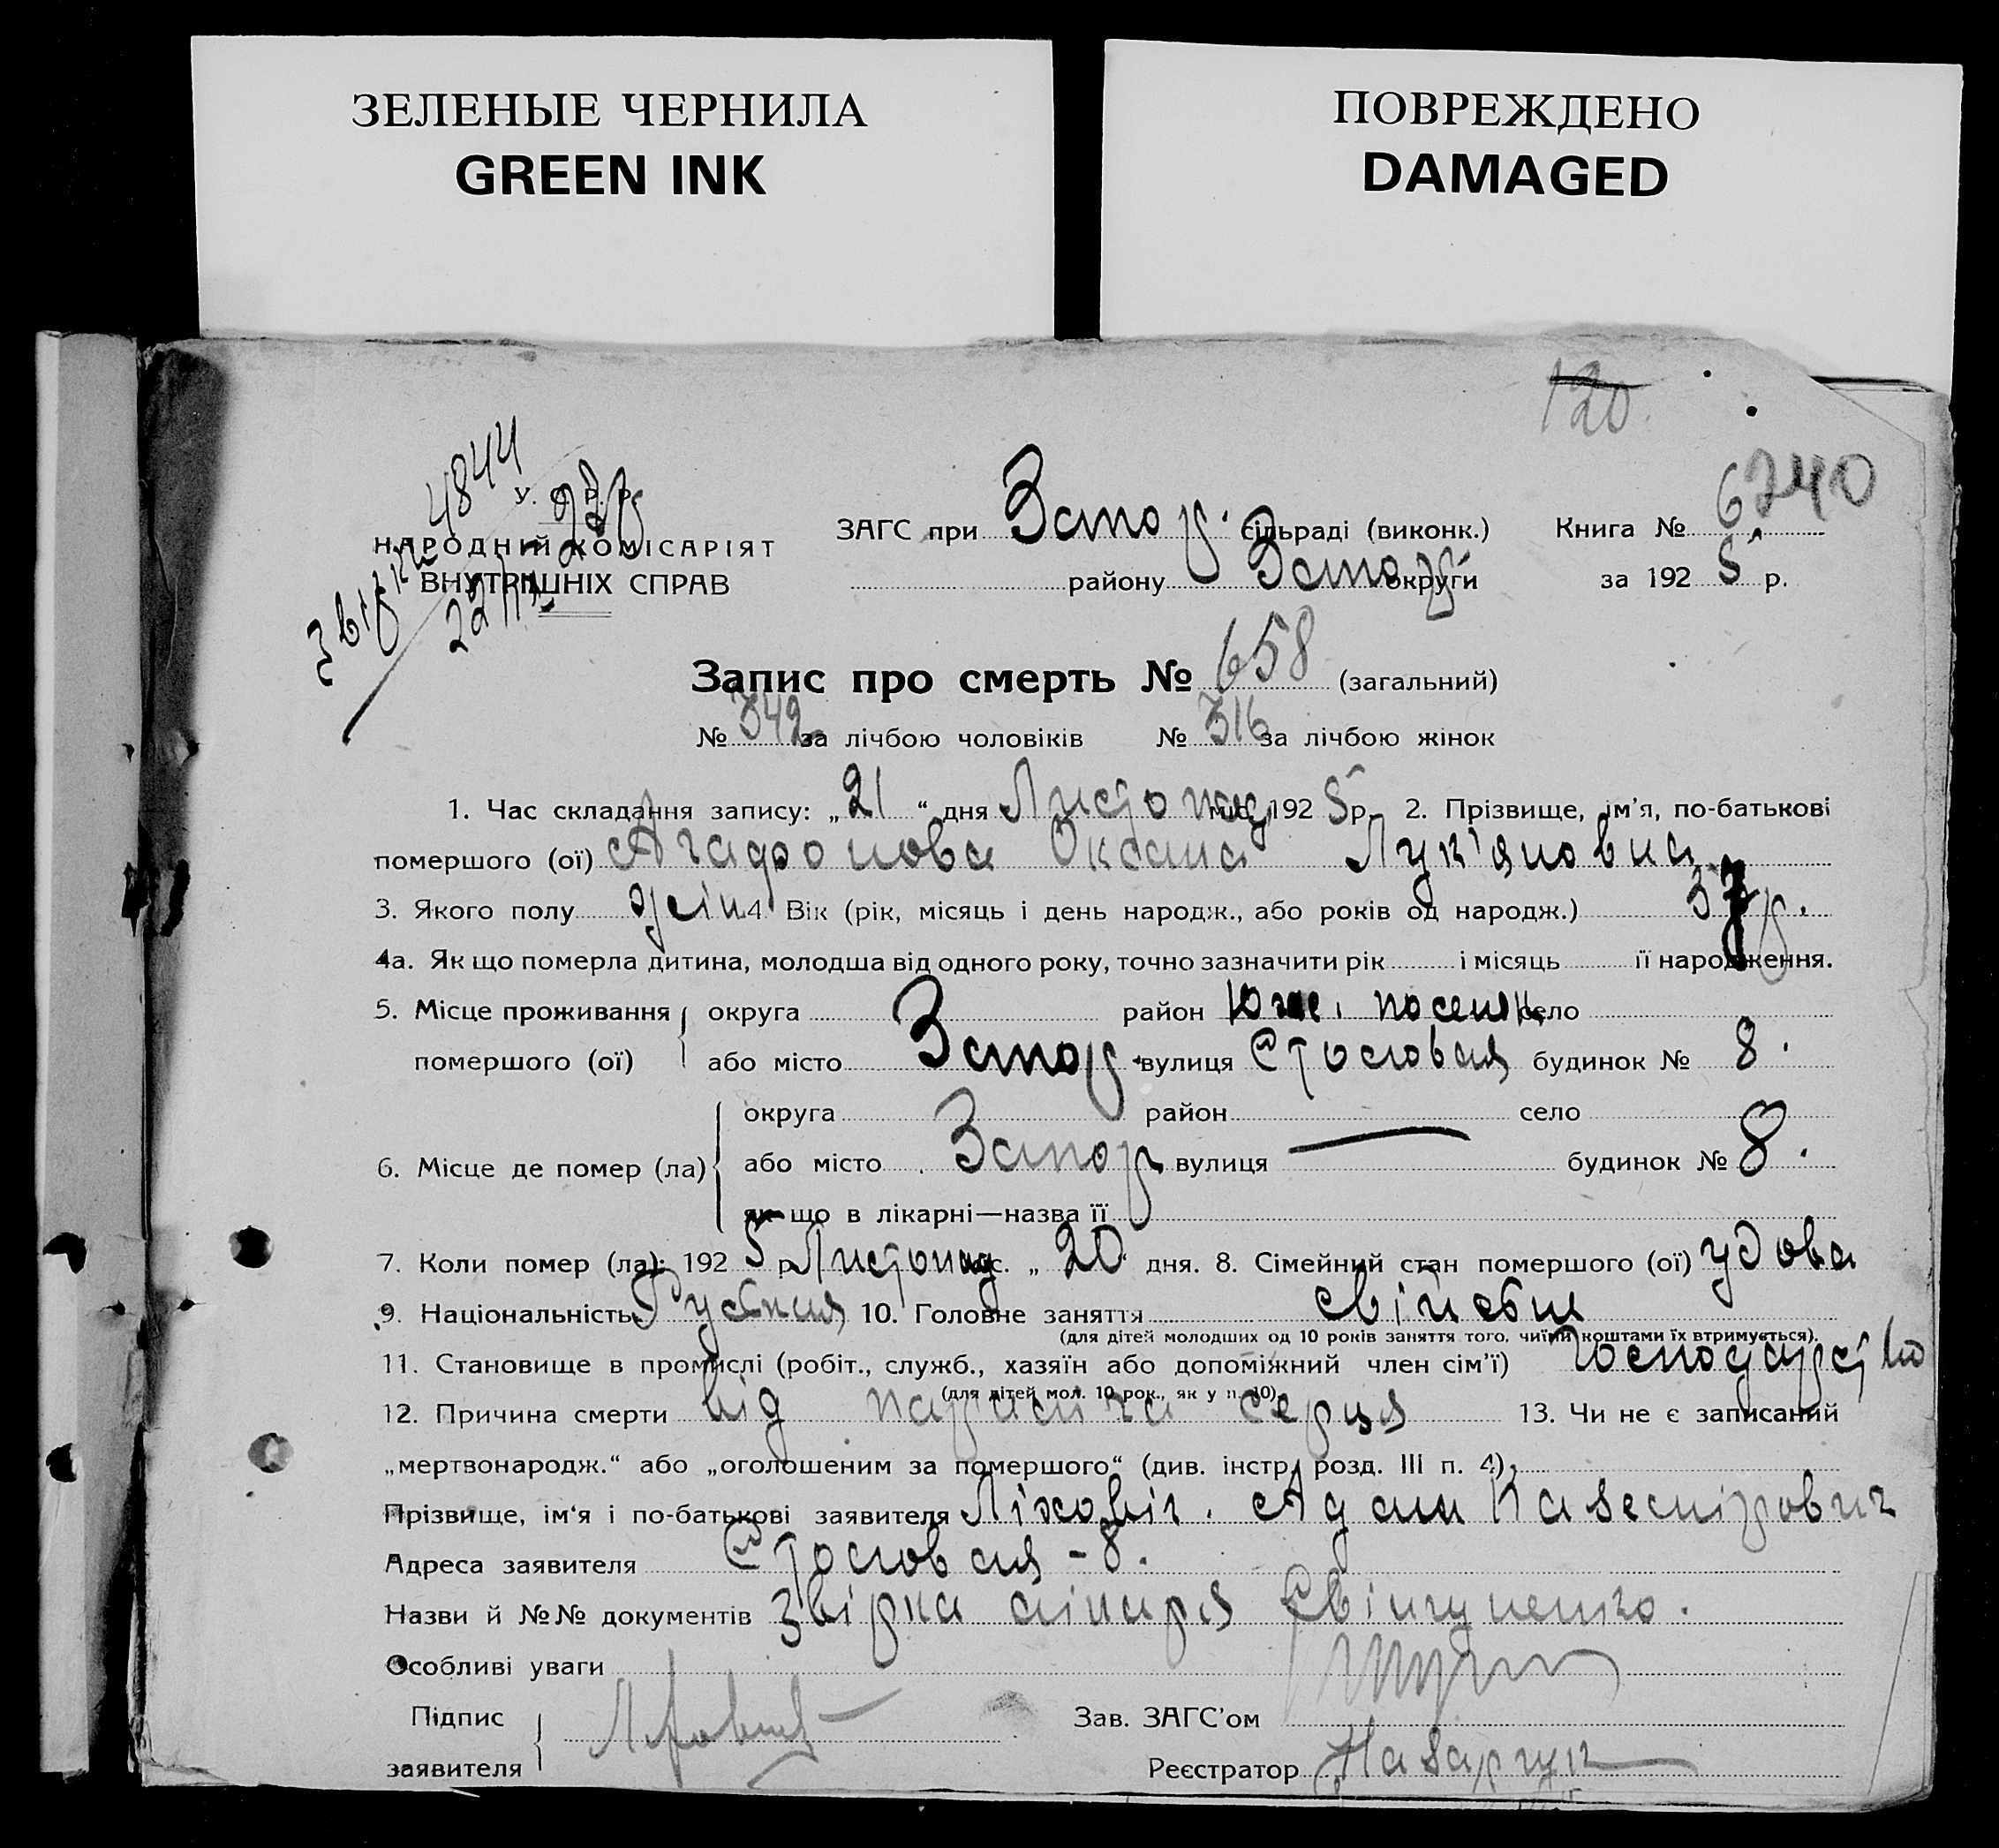 ЗЕЛЕНЫЕ ЧЕРНИЛА
GREEN INK
ПОВРЕЖДЕНО
DAMAGED
120
6740
4844
У. С. Р. Р.
НАРОДНІЙ КОМІСАРІЯТ
ВНУТРІШНІХ СПРАВ
ЗАГС при Запор. сільраді (виконк.) Книга №
району Запор округи за 192 5 р.
Запис про смерть № 658 (загальний)
№ 342 за лічбою чоловіків № 316 за лічбою жінок
1. Час складання запису: „ 21 “ дня Листопад міс. 192 5 р. 2. Прізвище, ім’я, по-батькові
помершого (ої) Агафонова Оксана Лук'яновна
3. Якого полу жін 4. Вік (рік, місяць і день народж., або років од народж.) 37 р.
4а. Як що померла дитина, молодша від одного року, точно зазначити рік і місяць її народження.
5. Місце проживання округа район Южн. поселок село
помершого (ої) або місто Запор. вулиця будинок № 8.
округа район село
6. Місце де помер (ла) або місто Запор вулиця — будинок № 8.
як-що в лікарні—назва її
7. Коли помер (ла): 192 5 р. Листопад міс. „ 20 “ дня. 8. Сімейний стан помершого (ої) удова
9. Національність Руская 10. Головне заняття свійське
(для дітей молодших од 10 років заняття того, чиїми коштами їх втримується).
11. Становище в промислі (робіт., служб., хазяїн або допоміжний член сім’ї) господарство
(для дітей мол. 10 рок., як у п. 10)
12. Причина смерти від параліча серця 13. Чи не є записаний
„мертвонародж.“ або „оголошеним за помершого“ (див. інстр. розд. III п. 4)
Прізвище, ім‘я і по-батькові заявителя Адам Каземірович
Адреса заявителя - 8.
Назви й №№ документів лікаря
Особливі уваги
Підпис
заявителя
Зав. ЗАГС’ом
Реєстратор